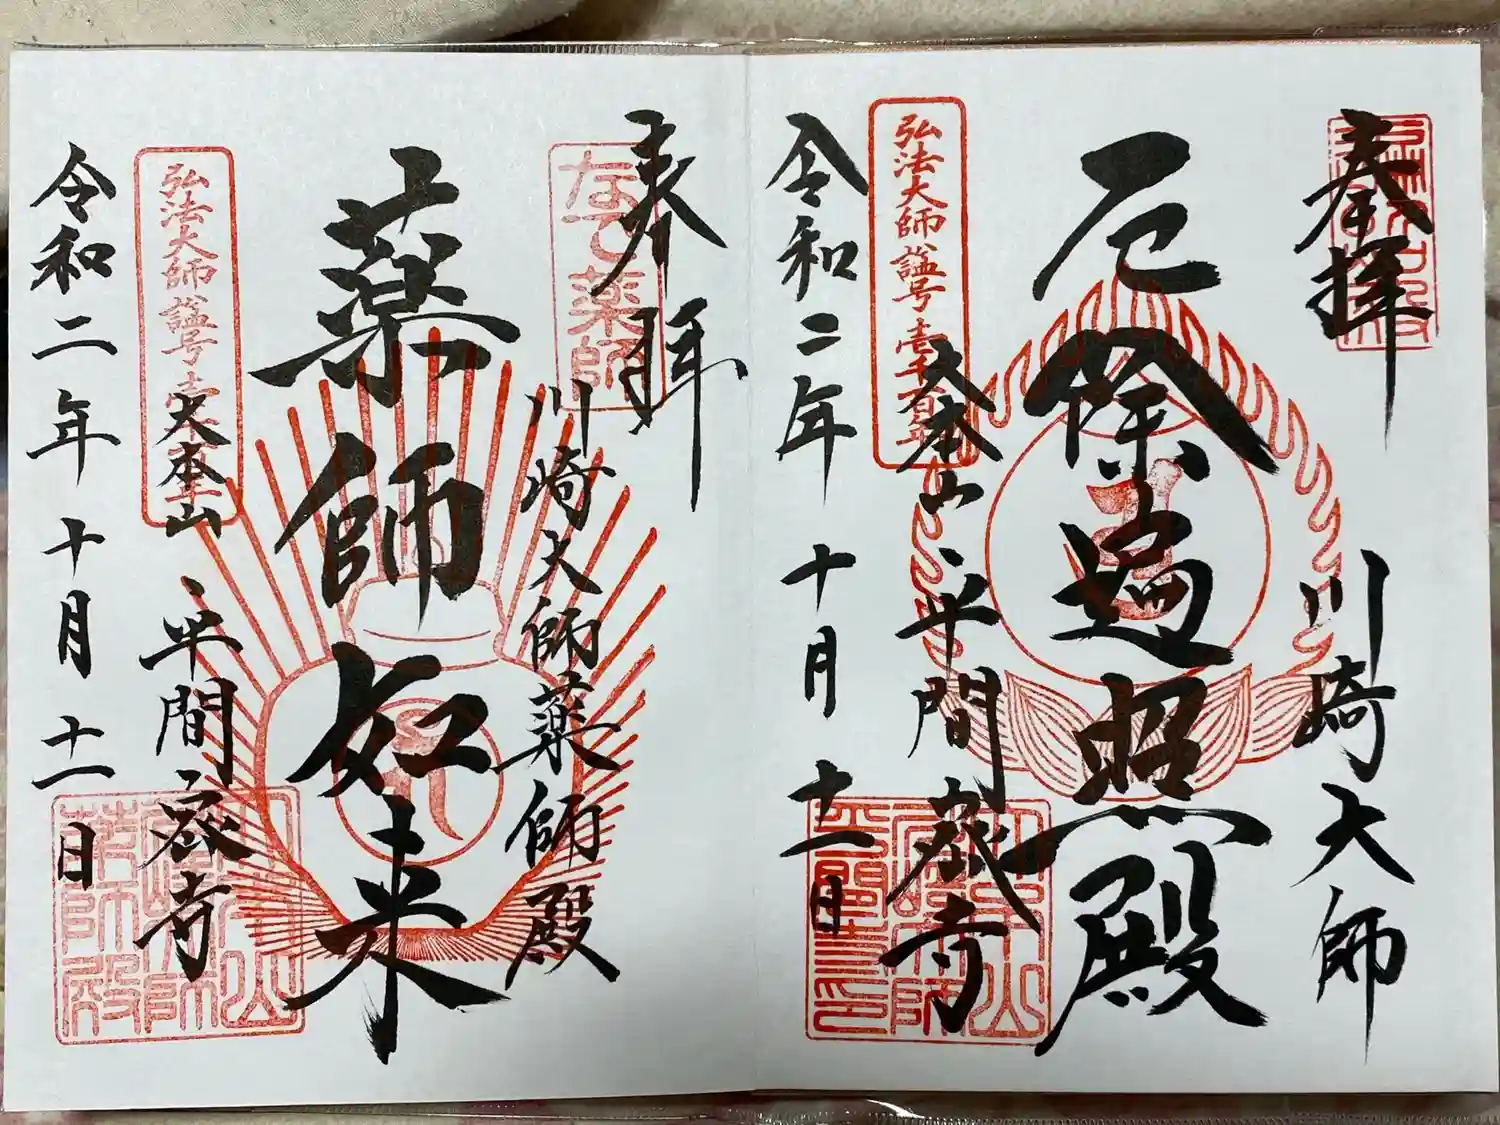 奉拝
川崎大師
厄除遍照殿
大本山
平間寺
弘法大師諡号壱千百年
令和二年十月十一日
奉拝
なで薬師
川崎大師薬師殿
薬師如来
大本山
平間寺
弘法大師諡号壱
令和二年十月十一日